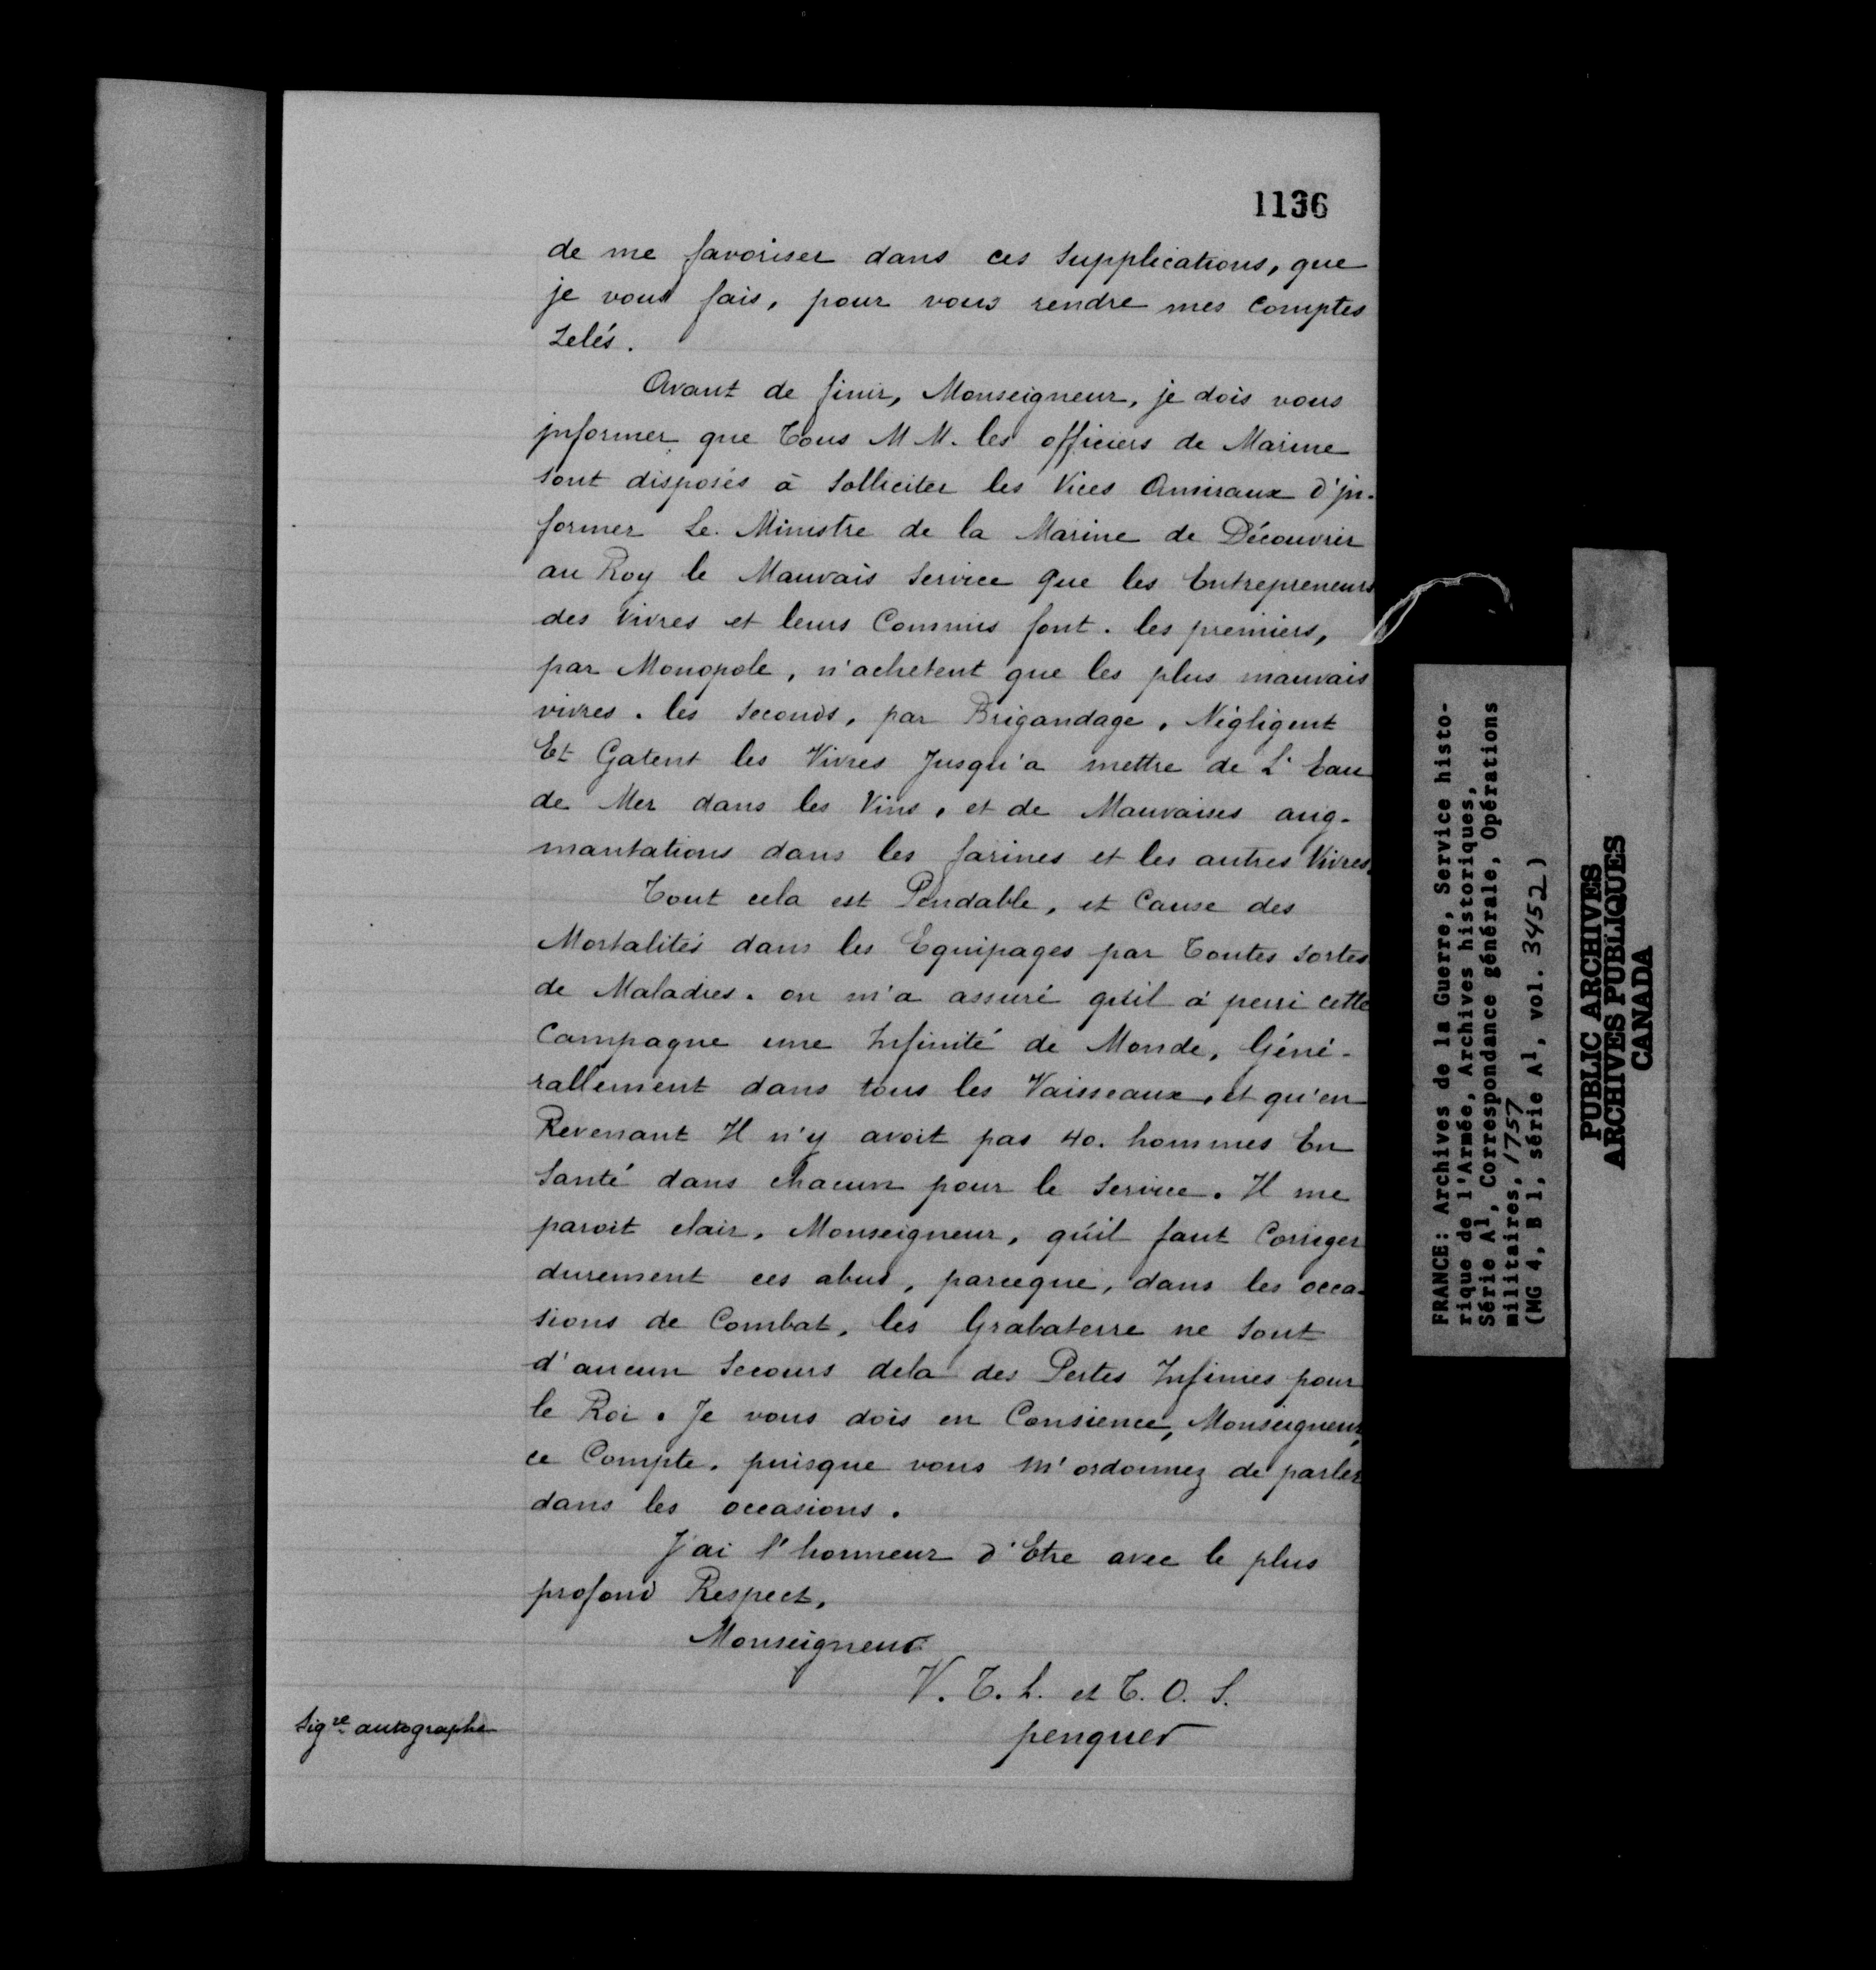 1136
de me favoriser dans ces Supplications, que
je vous fais, pour vous rendre mes Comptes
Zelés.
Avant de finir, Monseigneur, je dois vous
jnformer que Tous M M. les officiers de Marine
sont disposés à Solliciter les Vices Amiraux d'jn-
former Le Ministre de la Marine de Découvrir
au Roy le Mauvais Service que les Entrepreneurs
des Vivres et leurs Commis font. les premiers,
par Monopole, n'achetent que les plus mauvais
vivres. les Seconds, par Brigandage, Négligent
Et Gatent les Vivres Jusqu'a mettre de L'Eau
de Mer dans les Vins, et de Mauvaises aug-
mantations dans les farines et les autres Vivres.
Tout cela est Pendable, et Cause des
Mortalités dans les Equipages par Toutes Sortes
de Maladies. on m'a assuré qu'il à perri cette
Campagne une Infinité de Monde, Géné-
rallement dans tous les Vaisseaux, et qu'en
Revenant Il n'y avoit pas 40. hommes En
Santé dans chacun pour le Service. Il me
paroit clair, Monseigneur, qu'il faut Corriger
durement ces abus, parceque, dans les occa-
sions de Combat, les Grabaterre ne Sont
d'aucun Secours dela des Pertes Infinies pour
le Roi. Je vous dois en Consience, Monseigneur,
ce Compte, puisque vous m'ordonnez de parler
dans les occasions.
J'ai l'honneur d'Etre avec le plus
profond Respect,
Monseigneur
V. T. h. et T. O. S.
penquer
Sigre autographe
FRANCE: Archives de la Guerre, Service histo-
rique de l'Armée, Archives historiques,
Série A1, Correspondance générale, Opérations
militaires, 1757
(MG 4, B 1, série A1, vol. 3452)
PUBLIC ARCHIVES
ARCHIVES PUBLIQUES
CANADA